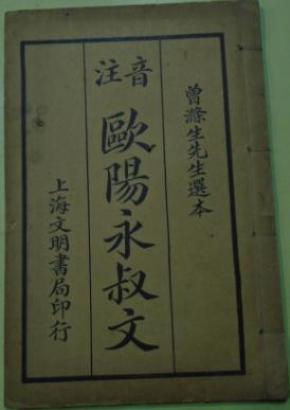 曾滌生先生選本
音注
歐陽永叔文
上海文明書局印行